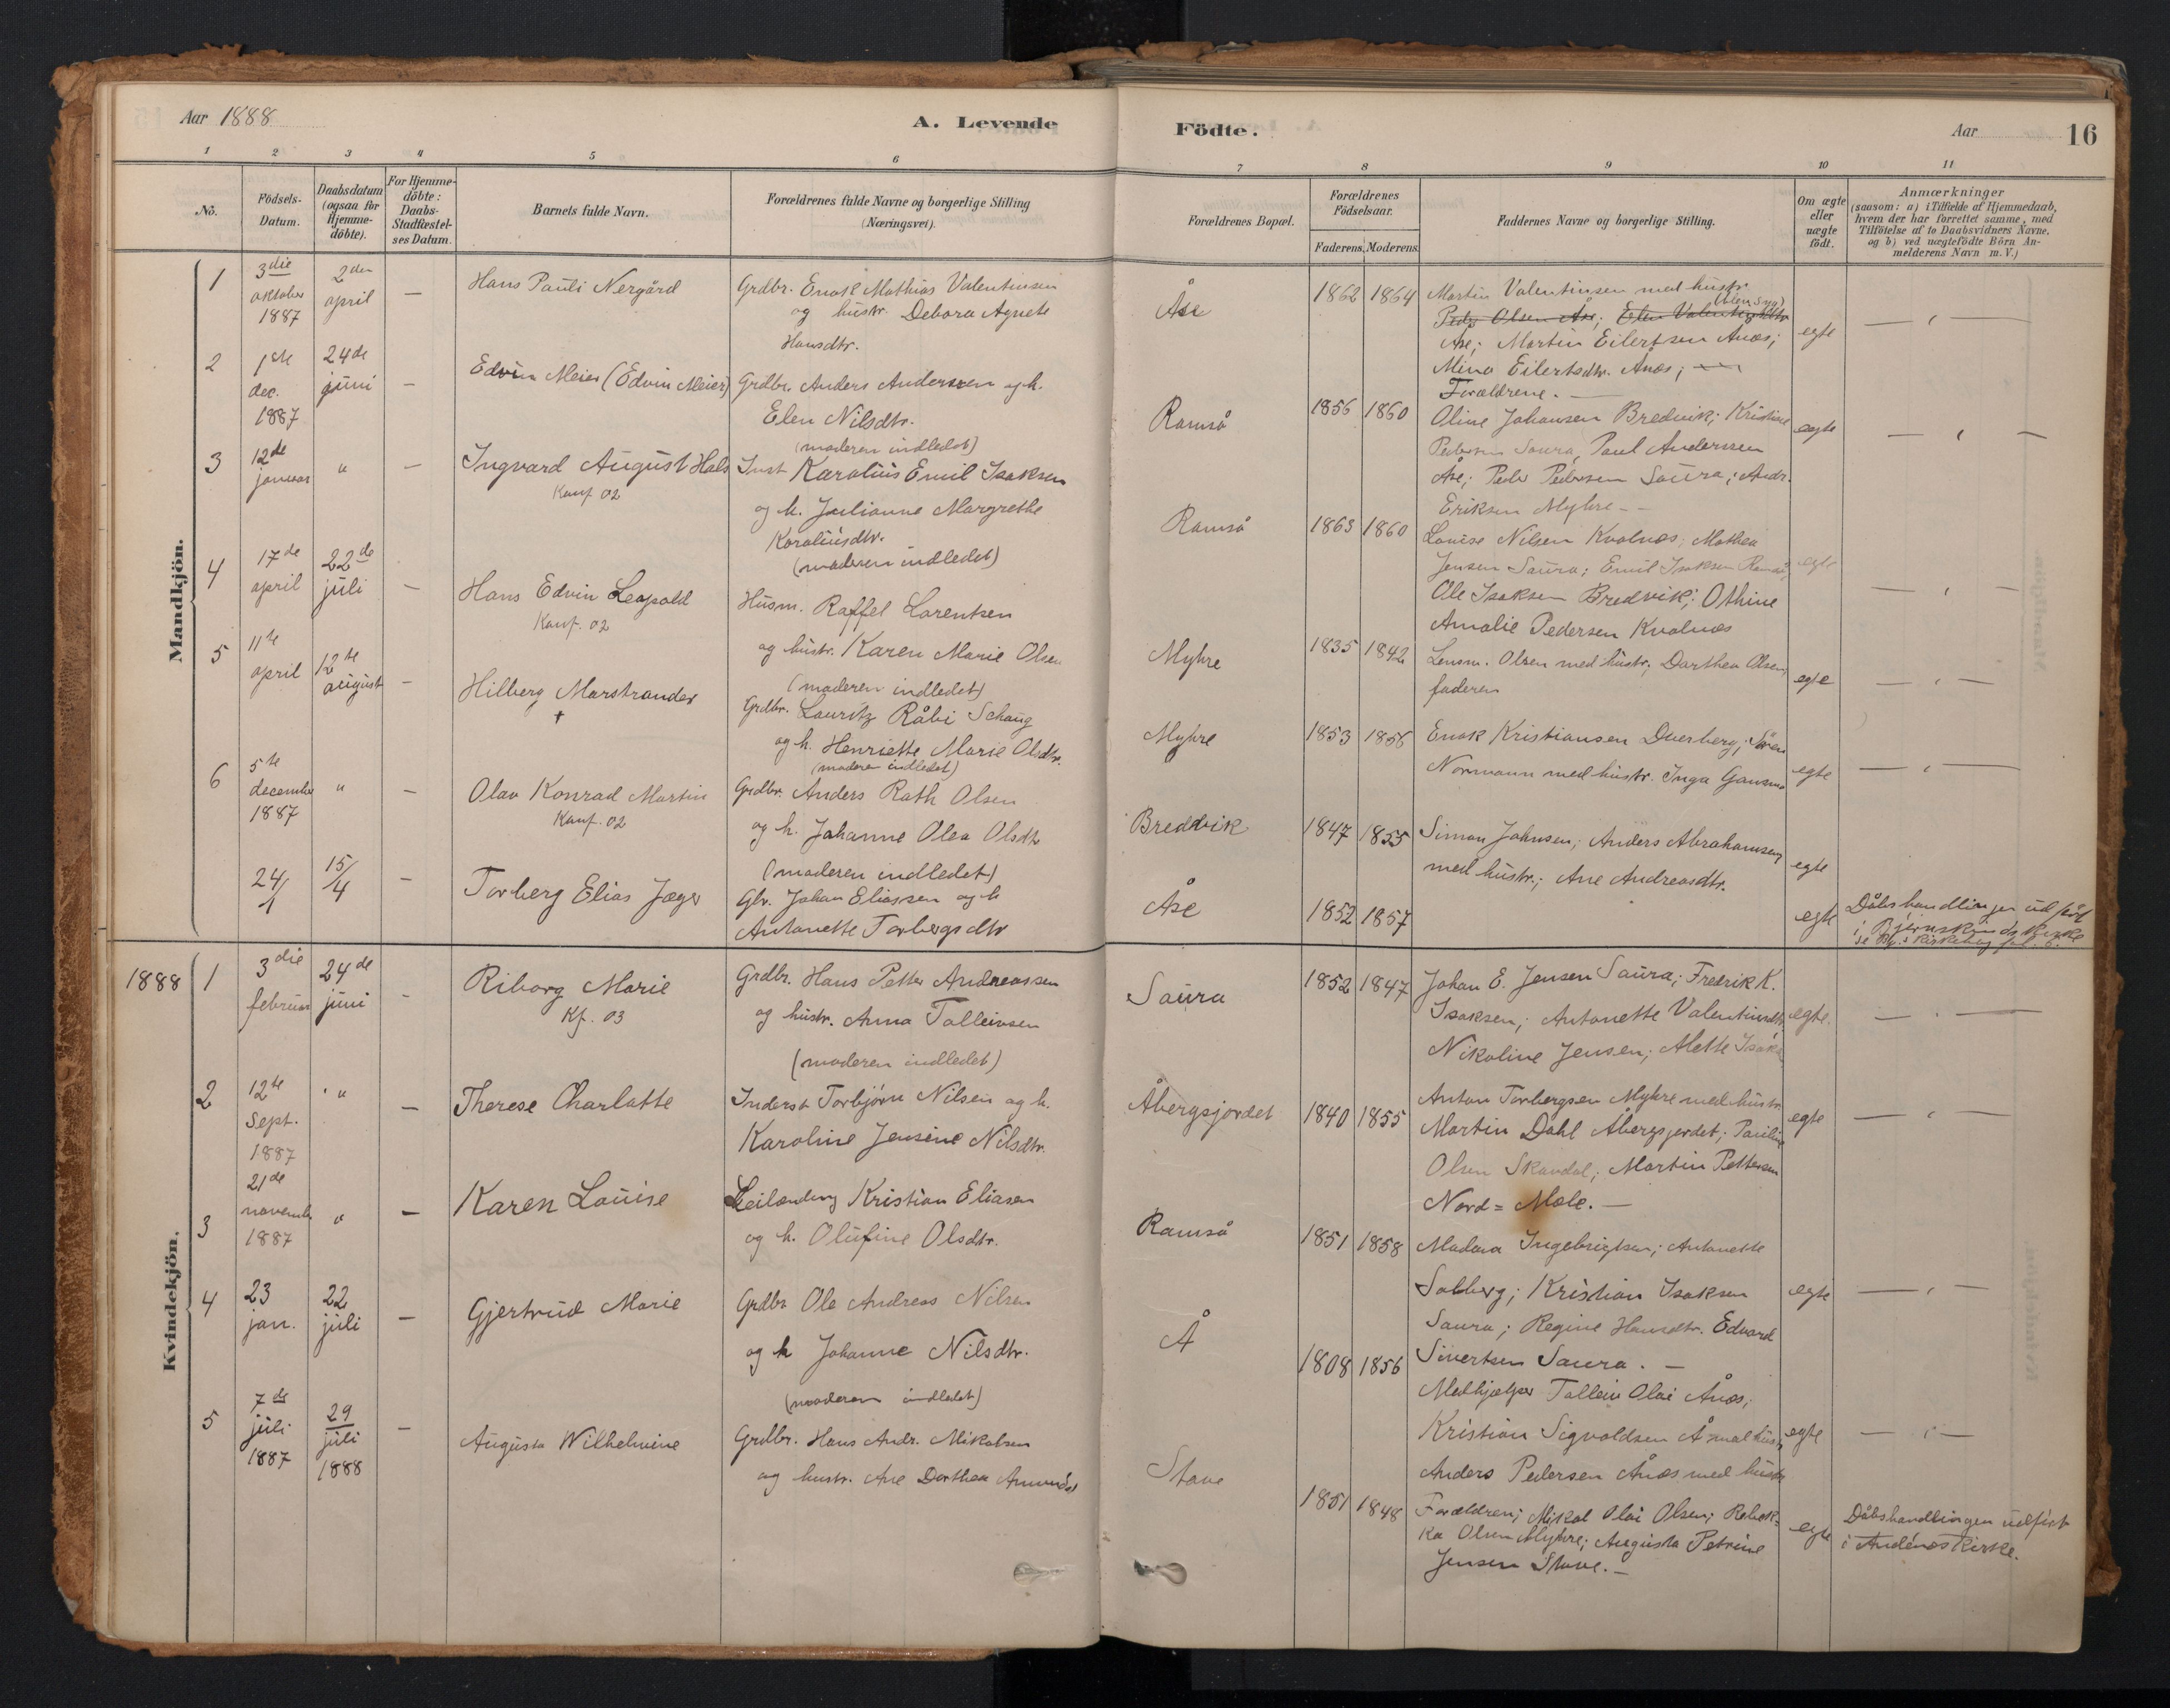 Aar 1888
A. Levende
Födte.
Aar
16
1 2 3 4 5 6 7 8 9 10 11
No.
Födsels-Datum.
Daabsdatum (ogsaa for Hjemme-döbte).
For Hjemme-döbte: Daabs-Stadfæstel-ses Datum.
Barnets fulde Navn.
Forældrenes fulde Navne og borgerlige Stilling (Næringsvei).
Forældrenes Bopæl.
Forældrenes Födselsaar.
Faderens. Moderens.
Faddernes Navne og borgerlige Stilling.
Om ægte eller uægte födt.
Anmærkninger
(saasom: a) i Tilfælde af Hjemmedaab,
hvem der har forrettet samme, med
Tilföielse af to Daabsvidners Navne,
og b) ved uægtefödte Börn An-
melderens Navn m. V.)
Mandkjön.
1
3die oktober 1887
2den april
—
Hans Pauli Nergård
Grdbr. Enok Mathias Valentinsen
og hustr. Debora Agnete
Hansdtr.
Åse
1862 1864
Martin Valentinsen med hustr.
Peder Olsen Åse; Elen
Åse; Martin Eilertsen Ånes;
Mina Eilertsdtr. Ånes;
Forældrene. —
egte
2
1ste dec. 1887
24de juni
—
Edvin Meier (Edvin Meier)
Grdbr. Anders Anderssen og h.
Elen Nilsdtr.
(moderen indledet)
Ramså
1856 1860
Oline Johansen Bredvik; Kristine
Pedersen Saura, Paul Anderssen
Åse; Peder Pedersen Saura; Andr.
Eriksen Myhre —
egte
3
12de januar
"
—
Ingvard August Hals
Konf. 02
Inst Karolius Emil Isaksen
og h. Julianne Margrethe
Karoliusdtr.
(moderen indledet)
Ramså
1863 1860
Louise Nilsen Kvalnes; Mathea
Jensen Saura; Emil Isaksen Ramså;
Ole Isaksen Bredvik; Othine
Amalie Pedersen Kvalnes
egte
4
17de april
22de juli
—
Hans Edvin Leopold
Konf. 02
Husm. Raffel Lorentsen
og hustr. Karen Marie Olsen
(moderen indledet)
Myhre
1835 1842
Lensm. Olsen med hustr; Dorthea Olsen,
faderen
egte
5
11te april
12te august
—
Hilberg Marstrander
†
Grdbr. Lauritz Råbi Schaug
og h. Henriette Marie Olsdtr.
(moderen indledet)
Myhre
1853 1856
Enok Kristiansen Dverberg; Sören
Normann med hustr. Inga
egte
6
5te december 1887
"
—
Olav Konrad Martin
Konf. 02
Grdbr. Anders Rath Olsen
og h. Johanne Olea Olsdtr
(moderen indledet)
Bredvik
1847 1855
Simon Johnsen; Anders Abrahamsen
med hustr.; Ane Andreasdtr.
egte
24/1
15/4
—
Torberg Elias Jæger
Gbr. Johan Eliassen og h
Antonette Torbergsdtr
Åse
1852 1857
egte
Dåbshandlingen udført
i Bjørnskinds kirke
Kvindekjön.
1888
1
3die februar
24de juni
—
Riborg Marie
Kf. 03
Grdbr. Hans Petter Andreassen
og hustr. Anna Tolleivsen
(moderen indledet)
Saura
1852 1847
Johan E. Jensen Saura; Fredrik K.
Isaksen; Antonette Valentinsdtr.
Nikoline Jensen; Alette
egte.
2
12te Sept. 1887
"
—
Therese Charlotte
Inderst Torbjörn Nilsen og h.
Karoline Jensine Nilsdtr.
Åbergsjordet
1840 1855
Anton Torbergsen Myhre med hustr.
Martin Dahl Åbergsjordet; Pauline
Olsen Skandal; Martin Pettersen
Nord=Mæle. —
egte
3
21de novemb. 1887
"
—
Karen Louise
Leilending Kristian Eliasen
og h. Olufine Olsdtr.
Ramså
1851 1858
Madava Ingebrigtsen; Antonette
Solberg; Kristian Isaksen
Saura; Regine Hansdtr. Edvard
Sivertsen Saura. —
egte
4
23 jan.
22 juli
—
Gjertrud Marie
Grdbr Ole Andreas Nilsen
og h Johanne Nilsdtr.
(moderen indledet)
Å
1808 1856
Medhjælper Tolleiv Olai Ånes;
Kristian Sigvaldsen Å med hustr
Anders Pedersen Ånes med hustr
egte
5
7de juli 1887
29 juli 1888
—
Augusta Wilhelmine
Grdbr. Hans Andr. Mikalsen
og hustr. Ane Dorthea Amundsd
Stave
1851 1848
Forældren; Mikal Olai Olsen; Rebek-
ka Olsen Myhre; Augusta Petrine
Jensen Stave. —
egte
Dåbshandlingen udført
i Andenes kirke.